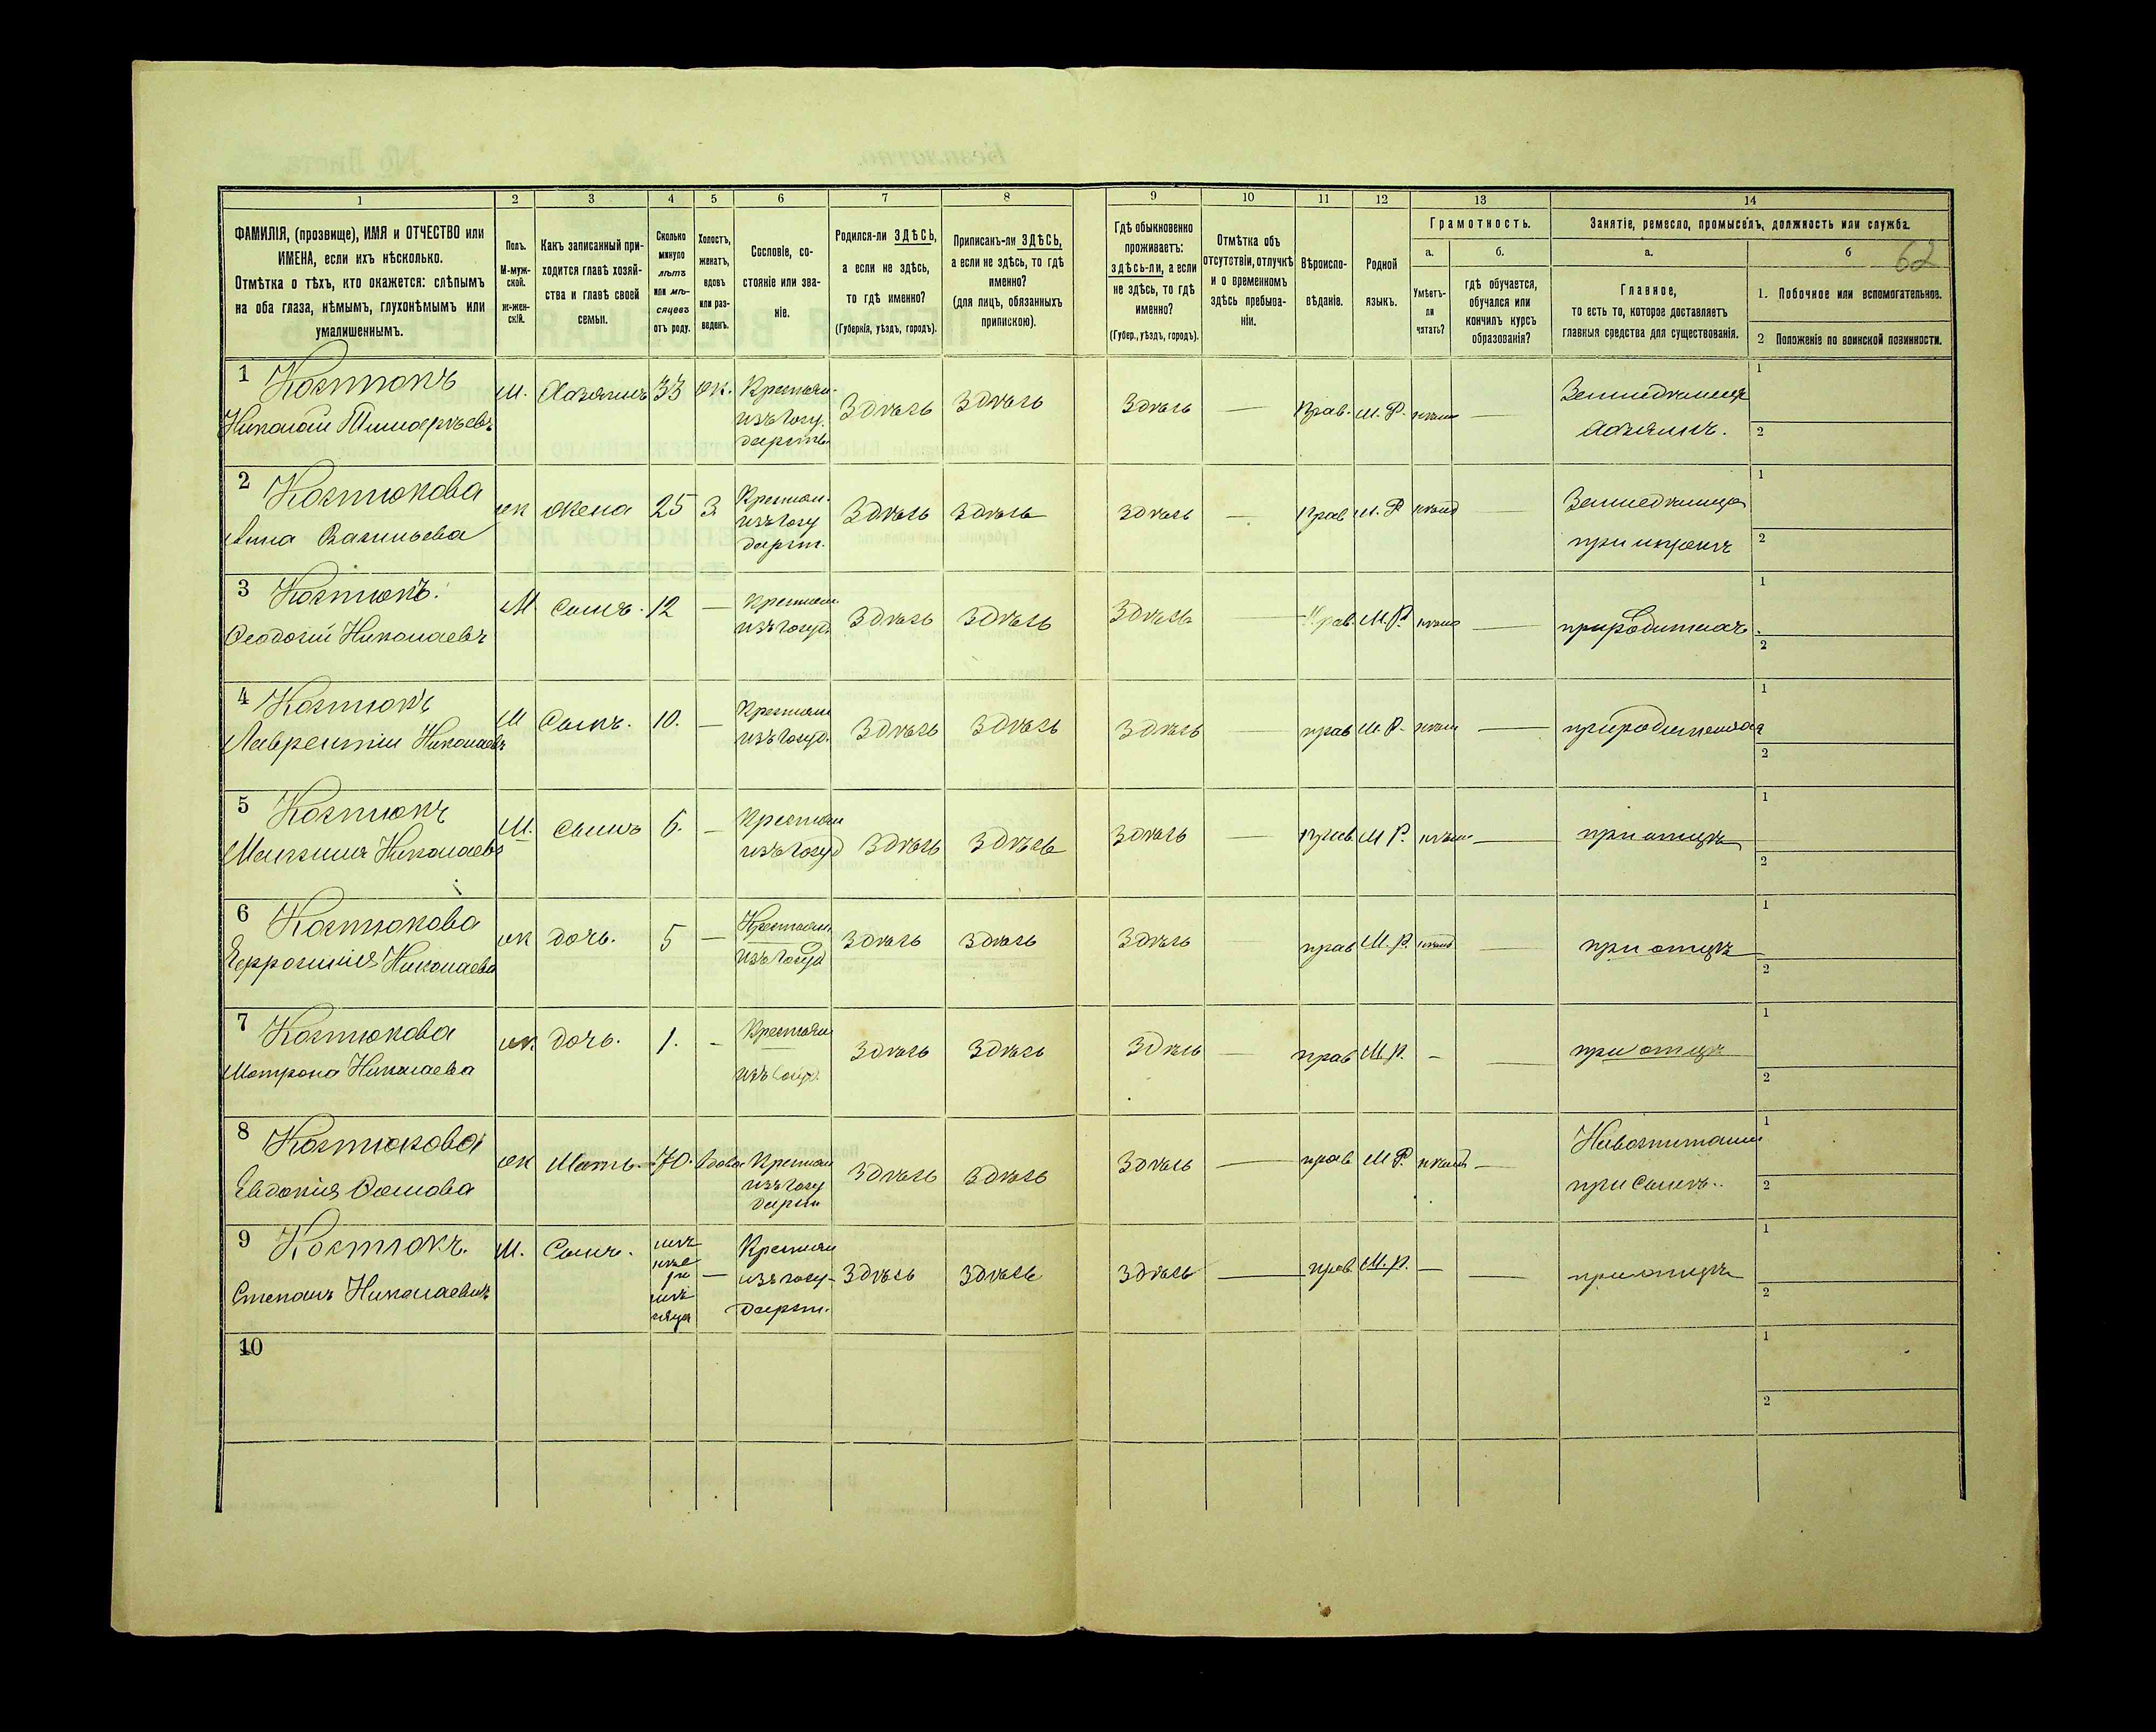 1 2 3 4 5 6 7 8 9 10 11 12 13 14
ФАМИЛІЯ, (прозвище), ИМЯ и ОТЧЕСТВО или
ИМЕНА, если ихъ нѣсколько.
Отмѣтка о тѣхъ, кто окажется: слѣпымъ
на оба глаза, нѣмымъ, глухонѣмымъ или
умалишеннымъ.
Полъ.
М-муж-
ской.
ж-жен-
скій.
Какъ записанный при-
ходится главѣ хозяй-
ства и главѣ своей
семьи.
Сколько
минуло
лѣтъ
или мѣ-
сяцевъ
отъ роду.
Холостъ,
женатъ,
вдовъ
или раз-
веденъ.
Сословіе, со-
стояніе или зва-
ніе.
Родился-ли ЗДѢСЬ,
а если не здѣсь,
то гдѣ именно?
(Губернія, уѣздъ, городъ).
Приписанъ-ли ЗДѢСЬ,
а если не здѣсь, то гдѣ
именно?
(для лицъ, обязанныхъ
припискою).
Гдѣ обыкновенно
проживаетъ:
здѣсь-ли, а если
не здѣсь, то гдѣ
именно?
(Губер., уѣздъ, городъ).
Отмѣтка объ
отсутствіи, отлучкѣ
и о временномъ
здѣсь пребыва-
ніи.
Вѣроиспо-
вѣданіе.
Родной
языкъ.
Грамотность.
а.
Умѣетъ-
ли
читать?
б.
гдѣ обучается,
обучался или
кончилъ курсъ
образованія?
Занятіе, ремесло, промыселъ, должность или служба.
а.
Главное,
то есть то, которое доставляетъ
главныя средства для существованія.
б
62
1. Побочное или вспомогательное.
2 Положеніе по воинской повинности.
1 Костюкъ
Николай
М. Хозяинъ 33 ж. Крестьян.
изъ госу.
дарств.
Здѣсь Здѣсь Здѣсь — Прав. М. Р. —
хозяинъ.
1
2
2 Костюкова
Анна Васильева
ж жена 25 З. Крестьян.
изъ госу
дарст.
Здѣсь Здѣсь Здѣсь — Прав М. Р —
при
1
2
3 Костюкъ.
Феодосій Николаевъ
М Сынъ. 12 — Крестьян.
изъ госуд.
Здѣсь Здѣсь Здѣсь — Прав. М. Р. —
при родителяхъ.
1
2
4 Костюкъ
Лаврентій Николаевъ
М Сынъ. 10. — Крестьян
изъ госуд.
Здѣсь Здѣсь Здѣсь — прав М. Р. —
при родителяхъ
1
2
5 Костюкъ
Максимъ Николаевъ
М. Сынъ 6. — Крестьян
изъ госуд
Здѣсь Здѣсь Здѣсь — прав М Р. —
при отцѣ
1
2
6 Костюкова
Николаева
ж дочь. 5 — Крестьян.
изъ госуд
Здѣсь Здѣсь Здѣсь прав М. р. —
при отцѣ
1
2
7 Костюкова
Матрона Николаева
ж дочь. 1. - Крестьян
изъ госуд.
Здѣсь Здѣсь Здѣсь — прав М. р. - —
при отцѣ
1
2
8 Костюкова
Евдокія Фомова
ж Мать. 70. вдова Крестьян
изъ госу
дарст
Здѣсь Здѣсь Здѣсь — прав М Р. —
при сынѣ.
1
2
9 Костюкъ.
Степанъ Николаевъ
М. Сынъ. — Крестьян
изъ госу-
дарст.
Здѣсь Здѣсь Здѣсь — прав. М. р. — —
при отцѣ
1
2
10
1
2